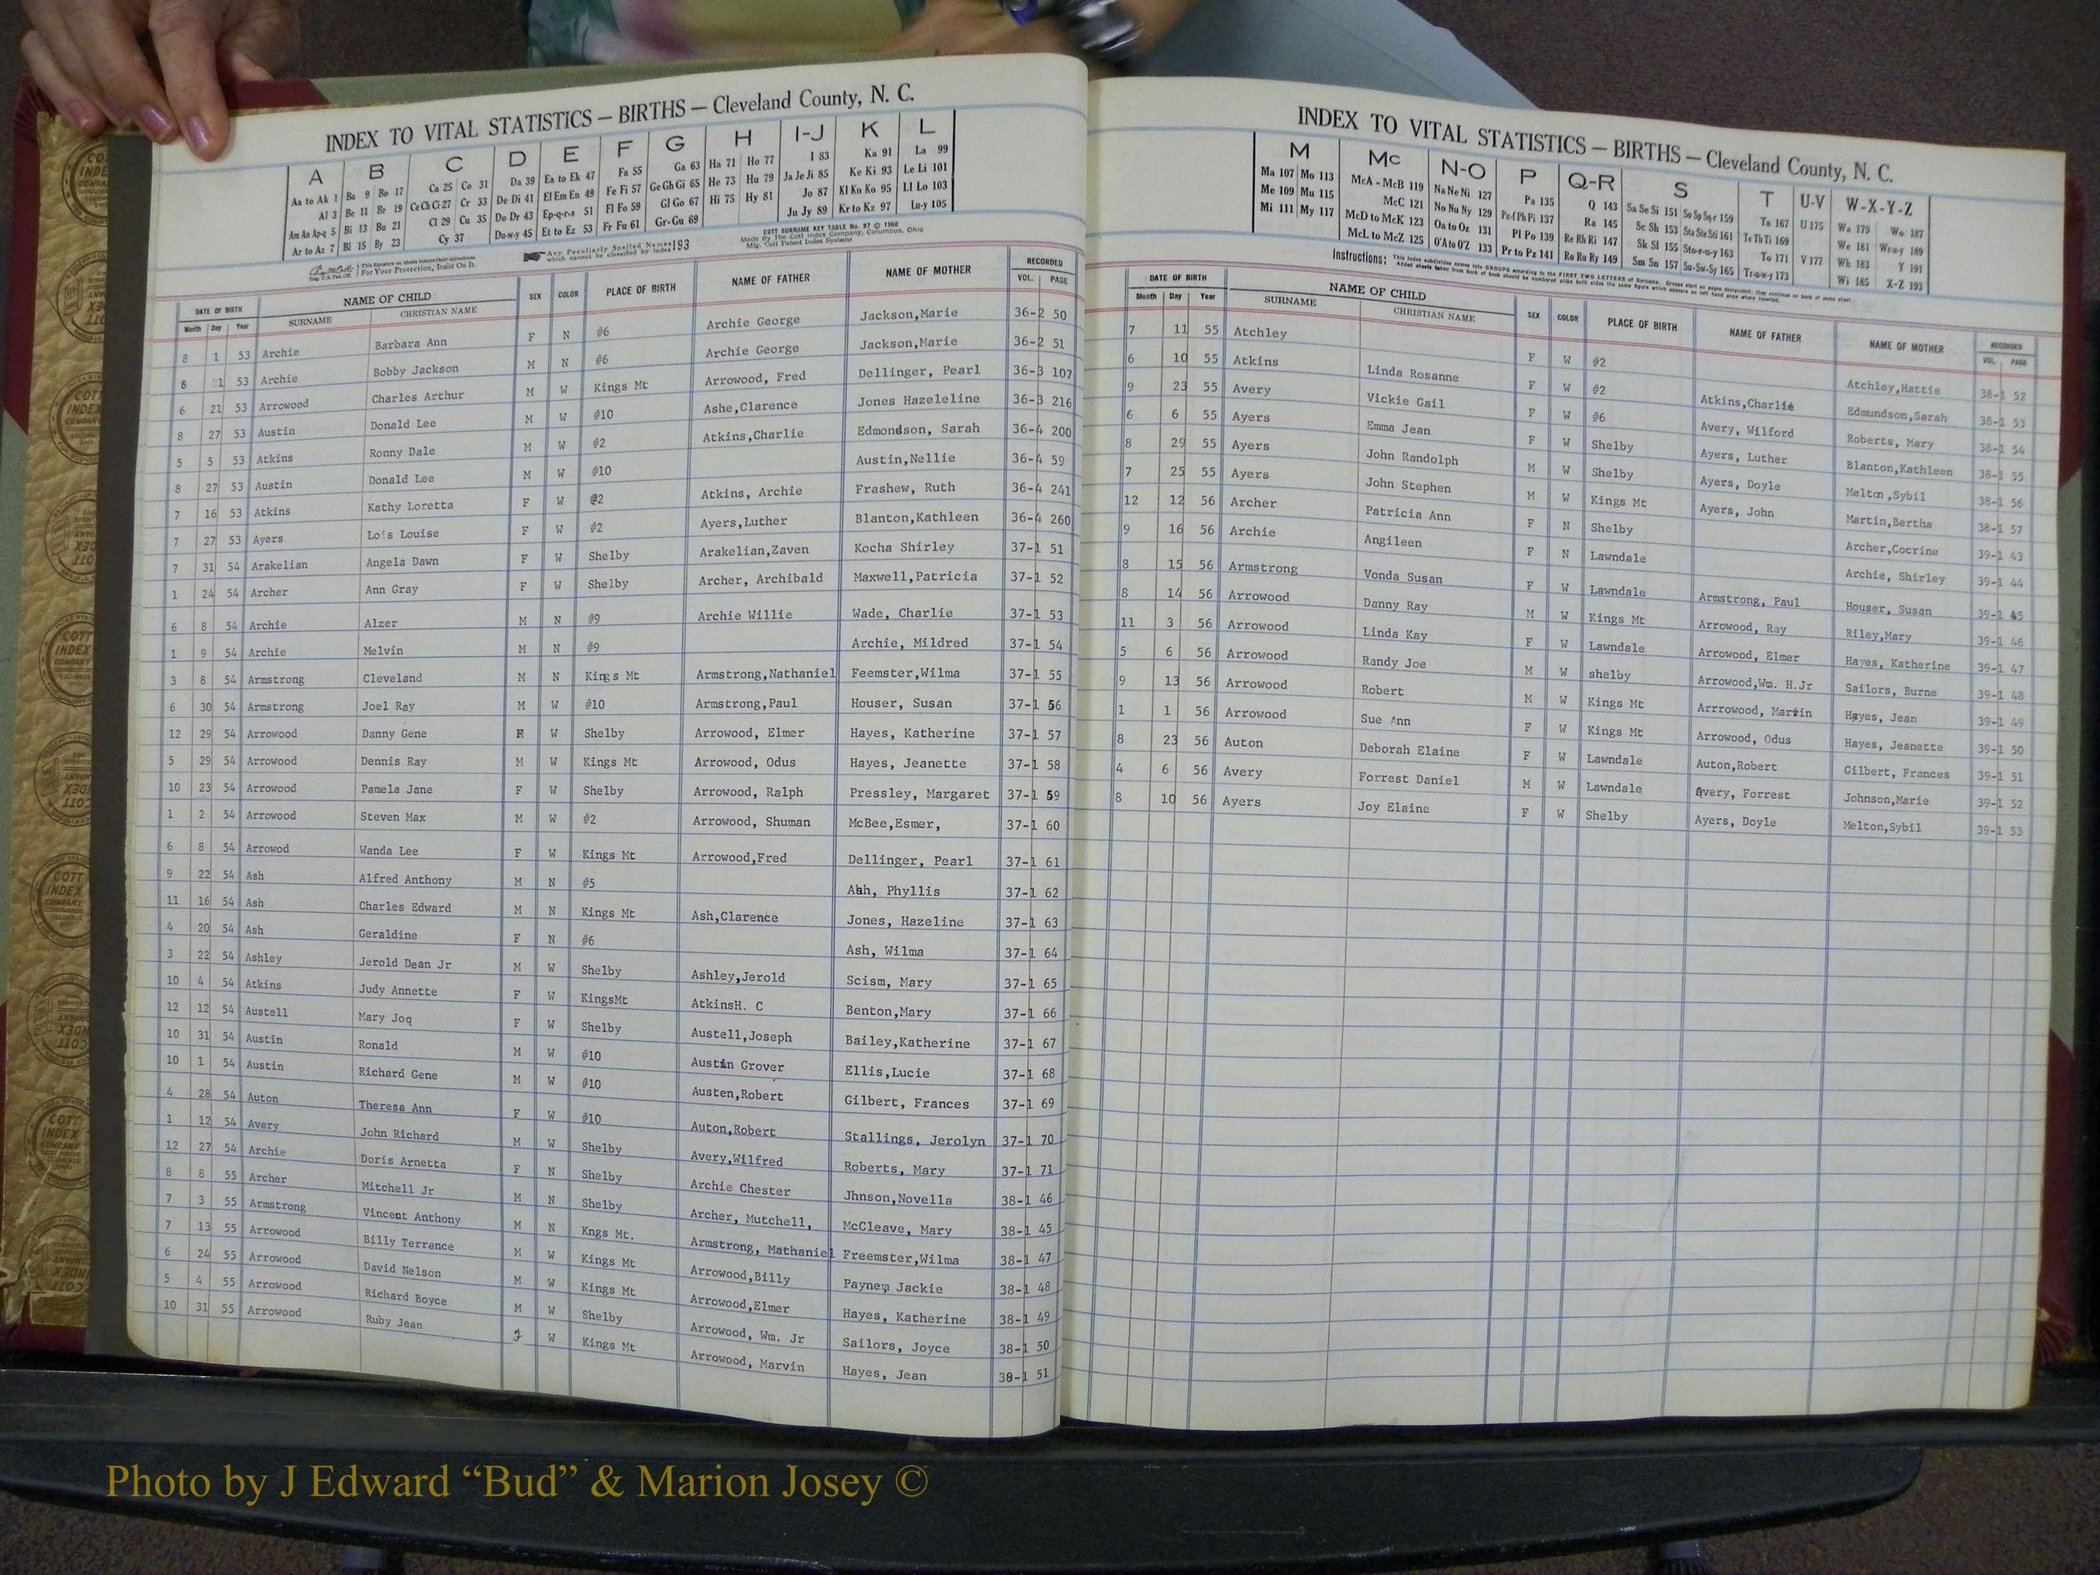 INDEX TO VITAL STATISTICS — BIRTHS — Cleveland County, N. C.
A B C D E F G H I-J K L
Aa to Ak 1 Ba 9 Bo 17 Ca 25 Co 31 Da 39 Ea to Ek 47 Fa 55 Ga 63 Ha 71 Ho 77 I 83 Ka 91 La 99
Al 3 Be 11 Br 19 Ce Ch Ci 27 Cr 33 De Di 41 El Em En 49 Fe Fi 57 Ge Gh Gi 65 He 73 Hu 79 Ja Je Ji 85 Ke Ki 93 Le Li 101
Am An Ap-q 5 Bi 13 Bu 21 Cl 29 Cu 35 Do Dr 43 Ep-q-r-s 51 Fl Fo 59 Gl Go 67 Hi 75 Hy 81 Jo 87 Kl Kn Ko 95 Ll Lo 103
Ar to Az 7 Bl 15 By 23 Cy 37 Du-w-y 45 Et to Ez 53 Fr Fu 61 Gr-Gu 69 Ju Jy 89 Kr to Kz 97 Lu-y 105
For Your Protection, Insist On It.
Any Peculiarly Spelled Names which cannot be classified by Index 193
COTT SURNAME KEY TABLE No. 97 © 1960
Made By The Cott Index Company, Columbus, Ohio
Mfg. Cott Patent Index Systems
DATE OF BIRTH NAME OF CHILD SEX COLOR PLACE OF BIRTH NAME OF FATHER NAME OF MOTHER RECORDED
Month Day Year SURNAME CHRISTIAN NAME VOL. PAGE
8 1 53 Archie Barbara Ann F N #6 Archie George Jackson,Marie 36-2 50
8 1 53 Archie Bobby Jackson M N #6 Archie George Jackson,Marie 36-2 51
6 21 53 Arrowood Charles Arthur M W Kings Mt Arrowood, Fred Dellinger, Pearl 36-3 107
8 27 53 Austin Donald Lee M W #10 Ashe,Clarence Jones Hazeleline 36-3 216
5 5 53 Atkins Ronny Dale M W #2 Atkins,Charlie Edmondson, Sarah 36-4 200
8 27 53 Austin Donald Lee M W #10 Austin,Nellie 36-4 59
7 16 53 Atkins Kathy Loretta F W @2 Atkins, Archie Frashew, Ruth 36-4 241
7 27 53 Ayers Lois Louise F W #2 Ayers,Luther Blanton,Kathleen 36-4 260
7 31 54 Arakelian Angela Dawn F W Shelby Arakelian,Zaven Kocha Shirley 37-1 51
1 24 54 Archer Ann Gray F W Shelby Archer, Archibald Maxwell,Patricia 37-1 52
6 8 54 Archie Alzer M N #9 Archie Willie Wade, Charlie 37-1 53
1 9 54 Archie Melvin M N #9 Archie, Mildred 37-1 54
3 8 54 Armstrong Cleveland M N Kings Mt Armstrong,Nathaniel Feemster,Wilma 37-1 55
6 30 54 Armstrong Joel Ray M W #10 Armstrong,Paul Houser, Susan 37-1 56
12 29 54 Arrowood Danny Gene W Shelby Arrowood, Elmer Hayes, Katherine 37-1 57
5 29 54 Arrowood Dennis Ray M W Kings Mt Arrowood, Odus Hayes, Jeanette 37-1 58
10 23 54 Arrowood Pamela Jane F W Shelby Arrowood, Ralph Pressley, Margaret 37-1 59
1 2 54 Arrowood Steven Max M W #2 Arrowood, Shuman McBee,Esmer, 37-1 60
6 8 54 Arrowod Wanda Lee F W Kings Mt Arrowood,Fred Dellinger, Pearl 37-1 61
9 22 54 Ash Alfred Anthony M N #5 Ahh, Phyllis 37-1 62
11 16 54 Ash Charles Edward M N Kings Mt Ash,Clarence Jones, Hazeline 37-1 63
4 20 54 Ash Geraldine F N #6 Ash, Wilma 37-1 64
3 22 54 Ashley Jerold Dean Jr M W Shelby Ashley,Jerold Scism, Mary 37-1 65
10 4 54 Atkins Judy Annette F W KingsMt AtkinsH. C Benton,Mary 37-1 66
12 12 54 Austell Mary Joq F W Shelby Austell,Joseph Bailey,Katherine 37-1 67
10 31 54 Austin Ronald M W #10 Austin Grover Ellis,Lucie 37-1 68
10 1 54 Austin Richard Gene M W #10 Austen,Robert Gilbert, Frances 37-1 69
4 28 54 Auton Theresa Ann F W #10 Auton,Robert Stallings, Jerolyn 37-1 70
1 12 54 Avery John Richard M W Shelby Avery,Wilfred Roberts, Mary 37-1 71
12 27 54 Archie Doris Arnetta F N Shelby Archie Chester Jhnson,Novella 38-1 46
8 8 55 Archer Mitchell Jr M N Shelby Archer, Mutchell, McCleave, Mary 38-1 45
7 3 55 Armstrong Vincent Anthony M N Kngs Mt. Armstrong, Mathaniel Freemster,Wilma 38-1 47
7 13 55 Arrowood Billy Terrance M W Kings Mt Arrowood,Billy Jackie 38-1 48
6 24 55 Arrowood David Nelson M W Kings Mt Arrowood,Elmer Hayes, Katherine 38-1 49
5 4 55 Arrowood Richard Boyce M W Shelby Arrowood, Wm. Jr Sailors, Joyce 38-1 50
10 31 55 Arrowood Ruby Jean W Kings Mt Arrowood, Marvin Hayes, Jean 38-1 51
INDEX TO VITAL STATISTICS — BIRTHS — Cleveland County, N. C.
M Mc N-O P Q-R S T U-V W-X-Y-Z
Ma 107 Mo 113 McA - McB 119 Na Ne Ni 127 Pa 135 Q 143 Sa Se Si 151 So Sp Sq-r 159 Ta 167 U 175 Wa 179 Wo 187
Me 109 Mu 115 McC 121 No Nu Ny 129 Pe-f Ph Pi 137 Ra 145 Sc Sh 153 Sta Ste Sti 161 Te Th Ti 169 We 181 Wr-u-y 189
Mi 111 My 117 McD to McK 123 Oa to Oz 131 Pl Po 139 Re Rh Ri 147 Sk Sl 155 Sto-r-u-y 163 To 171 V 177 Wh 183 Y 191
McL to McZ 125 O'A to O'Z 133 Pr to Pz 141 Ro Ru Ry 149 Sm Sn 157 Su-Sw-Sy 165 Tr-u-w-y 173 Wi 185 X-Z 193
Instructions:
DATE OF BIRTH NAME OF CHILD SEX COLOR PLACE OF BIRTH NAME OF FATHER NAME OF MOTHER RECORDED
Month Day Year SURNAME CHRISTIAN NAME VOL. PAGE
7 11 55 Atchley Linda Rosanne F W #2 Atchley,Hattie 38-1 52
6 10 55 Atkins Vickie Gail F W #2 Atkins,Charlie Edmundson,Sarah 38-1 53
9 23 55 Avery Emma Jean F W #6 Avery, Wilford Roberts, Mary 38-1 54
6 6 55 Ayers John Randolph F W Shelby Ayers, Luther Blanton,Kathleen 38-1 55
8 29 55 Ayers John Stephen M W Shelby Ayers, Doyle Melton ,Sybil 38-1 56
7 25 55 Ayers Patricia Ann M W Kings Mt Ayers, John Martin,Bertha 38-1 57
12 12 56 Archer Angileen F N Shelby Archer,Cocrine 39-1 43
9 16 56 Archie F N Lawndale Archie, Shirley 39-1 44
8 15 56 Armstrong Vonda Susan F W Lawndale Armstrong, Paul Houser, Susan 39-1 45
8 14 56 Arrowood Danny Ray M W Kings Mt Arrowood, Ray Riley,Mary 39-1 46
11 3 56 Arrowood Linda Kay F W Lawndale Arrowood, Elmer Hayes, Katherine 39-1 47
5 6 56 Arrowood Randy Joe M W shelby Arrowood,Wm. H.Jr Sailors, Burne 39-1 48
9 13 56 Arrowood Robert M W Kings Mt Arrrowood, Marvin Hayes, Jean 39-1 49
1 1 56 Arrowood Sue Ann F W Kings Mt Arrowood, Odus Hayes, Jeanette 39-1 50
8 23 56 Auton Deborah Elaine F W Lawndale Auton,Robert Gilbert, Frances 39-1 51
4 6 56 Avery Forrest Daniel M W Lawndale Avery, Forrest Johnson,Marie 39-1 52
8 10 56 Ayers Joy Elaine F W Shelby Ayers, Doyle Melton,Sybil 39-1 53
Photo by J Edward “Bud” & Marion Josey ©